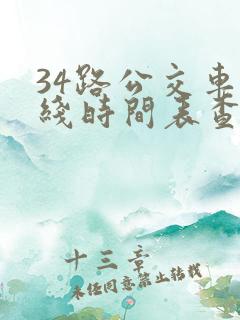 34路公交車
綫時間表查
十三章
未任同意禁止转载